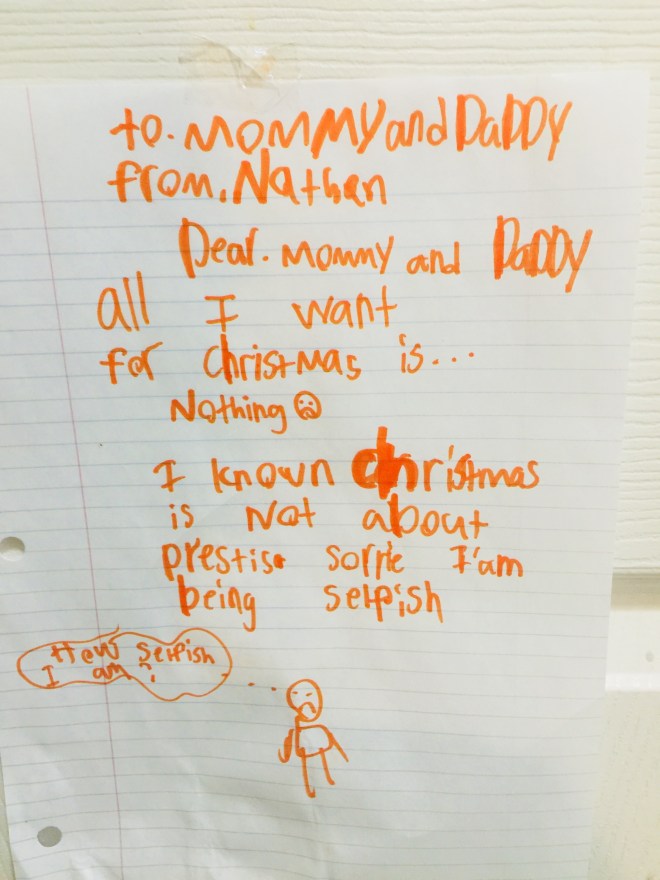 to. MOMMY and DaDDY
from. Nathan
Dear. Mommy and DaDDY
all I want
for christmas is...
Nothing
I known christmas
is Not about
prestise sorrie I'am
being selpish
How selpish
I am ?